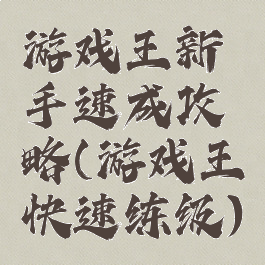 游戏王新
手速成攻
略(游戏王
快速练级)